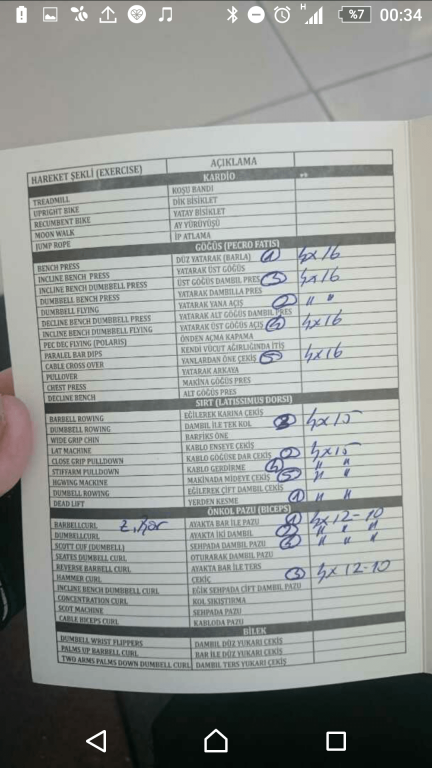 %7 00:34
HAREKET ŞEKLİ (EXERCISE) AÇIKLAMA
KARDİO
TREADMILL KOŞU BANDI
UPRIGHT BIKE DİK BİSİKLET
RECUMBENT BIKE YATAY BİSİKLET
MOON WALK AY YÜRÜYÜŞÜ
JUMP ROPE İP ATLAMA
GÖĞÜS (PECRO FATIS)
BENCH PRESS DÜZ YATARAK (BARLA) 1 4x16
INCLINE BENCH PRESS YATARAK ÜST GÖĞÜS
INCLINE BENCH DUMBBELL PRESS ÜST GÖĞÜS DAMBIL PRES 3 4x16
DUMBBELL BENCH PRESS YATARAK DAMBILLA PRES
DUMBELL FLYING YATARAK YANA AÇIŞ 2 " "
DECLINE BENCH DUMBBELL PRESS YATARAK ALT GÖĞÜS DAMBIL PRES
INCLINE BENCH DUMBBELL FLYING YATARAK ÜST GÖĞÜS AÇIŞ 4 4x16
PEC DEC FLYING (POLARIS) ÖNDEN AÇMA KAPAMA
PARALEL BAR DIPS KENDİ VÜCUT AĞIRLIĞINDA İTİŞ
CABLE CROSS OVER YANLARDAN ÖNE ÇEKİŞ 5 4x16
PULLOVER YATARAK ARKAYA
CHEST PRESS MAKİNA GÖĞÜS PRES
DECLINE BENCH ALT GÖĞÜS PRES
SIRT (LATISSIMUS DORSI)
BARBELL ROWING EĞİLEREK KARINA ÇEKİŞ
DUMBBELL ROWING DAMBIL İLE TEK KOL 4x15
WIDE GRIP CHIN BARFİKS ÖNE
LAT MACHINE KABLO ENSEYE ÇEKİŞ
CLOSE GRIP PULLDOWN KABLO GÖĞÜSE DAR ÇEKİŞ 2 4x15
STIFFARM PULLDOWN KABLO GERDİRME 4 " "
HGWING MACHINE MAKİNADA MİDEYE ÇEKİŞ 5 " "
DUMBELL ROWING EĞİLEREK ÇİFT DAMBIL ÇEKİŞ
DEAD LIFT YERDEN KESME 1 " "
ÖNKOL PAZU (BICEPS)
BARBELLCURL AYAKTA BAR İLE PAZU 1 4x12-10
DUMBELLCURL AYAKTA İKİ DAMBIL 2 " "
SCOTT CUF (DUMBELL) SEHPADA DAMBIL PAZU " "
SEATES DUMBELL CURL OTURARAK DAMBIL PAZU
REVERSE BARBELL CURL AYAKTA BAR İLE TERS
HAMMER CURL ÇEKİÇ 3 4x12-10
INCLINE BENCH DUMBBELL CURL EĞİK SEHPADA ÇİFT DAMBIL PAZU
CONCENTRATION CURL KOL SIKIŞTIRMA
SCOT MACHINE SEHPADA PAZU
CABLE BICEPS CURL KABLODA PAZU
BİLEK
DUMBELL WRIST FLIPPERS DAMBIL DÜZ YUKARI ÇEKİŞ
PALMS UP BARBELL CURL BAR İLE DÜZ YUKARI ÇEKİŞ
TWO ARMS PALMS DOWN DUMBELL CURL DAMBIL TERS YUKARI ÇEKİŞ